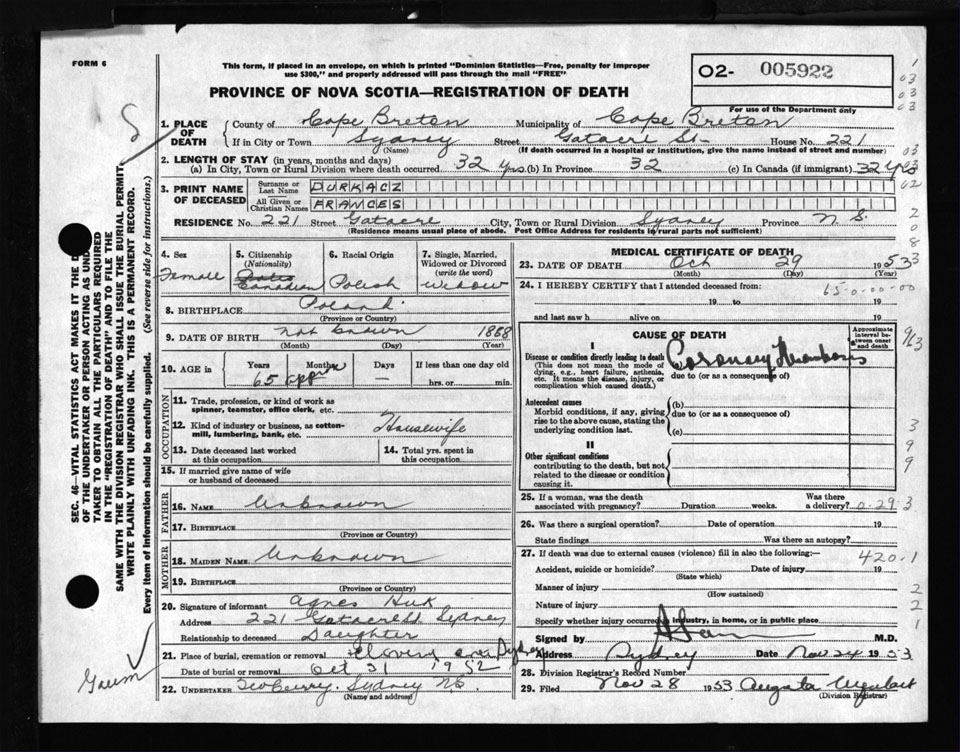 FORM 6
This form, if placed in an envelope, on which is printed "Dominion Statistics—Free, penalty for improper
use $300," and properly addressed will pass through the mail "FREE"
02- 005922
For use of the Department only
PROVINCE OF NOVA SCOTIA—REGISTRATION OF DEATH
1. PLACE OF DEATH County of Cape Breton Municipality of Cape Breton
If in City or Town Sydney Street Gatacre St. House No. 221
(Name) (If death occurred in a hospital or institution, give the name instead of street and number)
2. LENGTH OF STAY (in years, months and days)
(a) In City, Town or Rural Division where death occurred 32 yrs. (b) In Province 32 (c) In Canada (if immigrant) 32 yrs
3. PRINT NAME OF DECEASED Surname or Last Name DURKACZ
All Given or Christian Names FRANCES
RESIDENCE No. 221 Street Gatacre City, Town or Rural Division Sydney Province N.S.
(Residence means usual place of abode. Post Office Address for residents in rural parts not sufficient)
4. Sex Female
5. Citizenship (Nationality) Canadian
6. Racial Origin Polish
7. Single, Married, Widowed or Divorced (write the word) Widow
8. BIRTHPLACE Poland
(Province or Country)
9. DATE OF BIRTH not known 1888
(Month) (Day) (Year)
10. AGE in Years Months Days If less than one day old
65 approx — hrs. or min.
OCCUPATION
11. Trade, profession, or kind of work as
spinner, teamster, office clerk, etc.
12. Kind of industry or business, as cotton-
mill, lumbering, bank, etc. Housewife
13. Date deceased last worked
at this occupation
14. Total yrs. spent in
this occupation
15. If married give name of wife
or husband of deceased
FATHER
16. NAME Unknown
17. BIRTHPLACE
(Province or Country)
MOTHER
18. MAIDEN NAME Unknown
19. BIRTHPLACE
(Province or Country)
20. Signature of informant Agnes Huk
Address 221 Gatacre St Sydney
Relationship to deceased Daughter
21. Place of burial, cremation or removal Sydney
Date of burial or removal Oct 31 1952
22. UNDERTAKER Sydney NS.
(Name and address)
MEDICAL CERTIFICATE OF DEATH
23. DATE OF DEATH Oct 29 1953
(Month) (Day) (Year)
24. I HEREBY CERTIFY that I attended deceased from: 65-0-00-00
19 to 19
and last saw h alive on 19
CAUSE OF DEATH
Approximate interval between onset and death
I
Disease or condition directly leading to death
(This does not mean the mode of
dying, e.g., heart failure, asthenia,
etc. It means the disease, injury, or
complication which caused death.)
Coronary Thrombosis
due to (or as a consequence of)
Antecedent causes
Morbid conditions, if any, giving
rise to the above cause, stating the
underlying condition last.
(b)
due to (or as a consequence of)
(c)
II
Other significant conditions
contributing to the death, but not
related to the disease or condition
causing it.
25. If a woman, was the death
associated with pregnancy? Duration weeks. Was there
a delivery? 0-29-3
26. Was there a surgical operation? Date of operation 19
State findings Was there an autopsy?
27. If death was due to external causes (violence) fill in also the following:— 420.1
Accident, suicide or homicide? Date of injury 19
(State which)
Manner of injury
(How sustained)
Nature of injury
Specify whether injury occurred in industry, in home, or in public place
Signed by M.D.
Address Sydney Date Nov 24 1953
28. Division Registrar's Record Number
29. Filed Nov 28 1953
(Division Registrar)
SEC. 46—VITAL STATISTICS ACT MAKES IT THE D
OF THE UNDERTAKER OR PERSON ACTING AS UND
TAKER TO OBTAIN ALL THE PARTICULARS REQUIRED
IN THE "REGISTRATION OF DEATH" AND TO FILE THE
SAME WITH THE DIVISION REGISTRAR WHO SHALL ISSUE THE BURIAL PERMIT.
WRITE PLAINLY WITH UNFADING INK. THIS IS A PERMANENT RECORD.
Every item of Information should be carefully supplied. (See reverse side for instructions.)